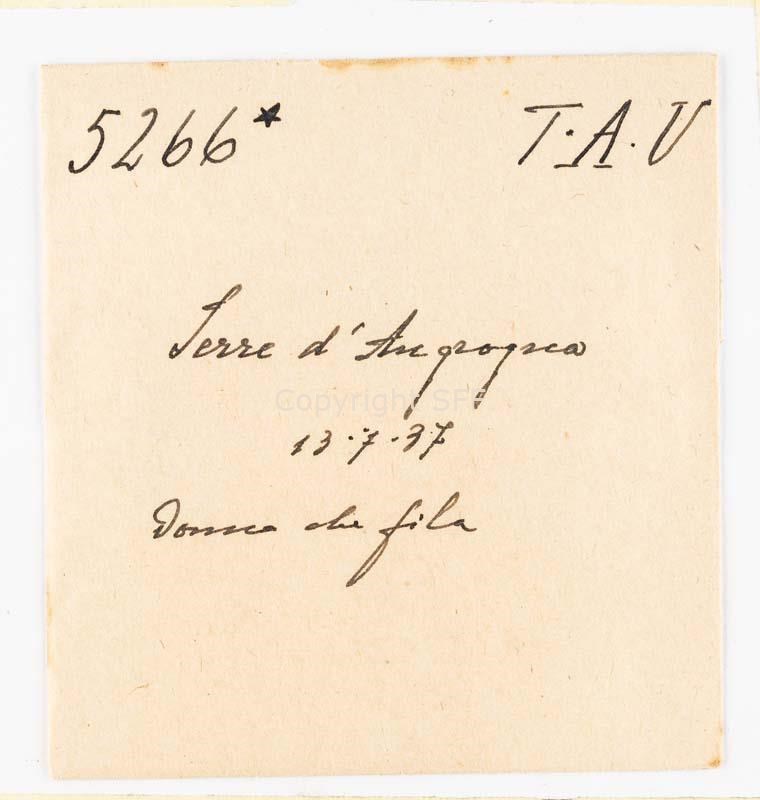 5266* T.A.V
Serre d'Angrogna
Copyright SFE
13.7.37
Donna che fila